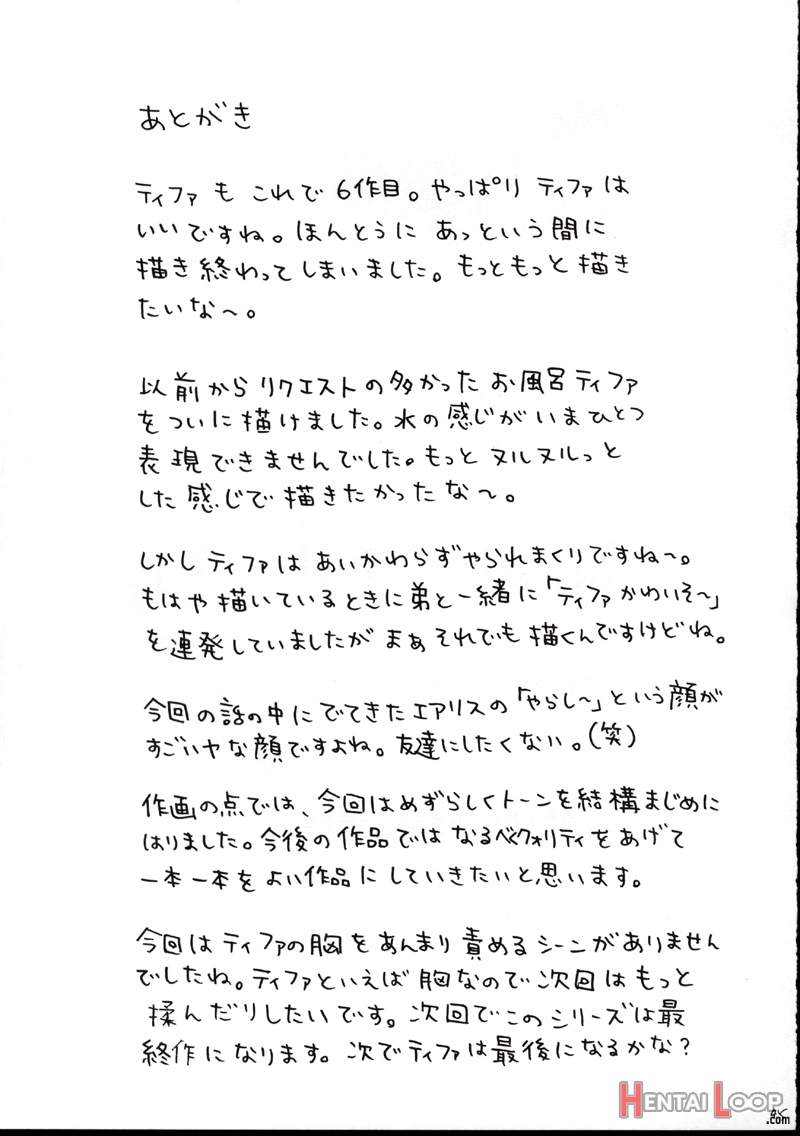 あとがき
ティファも これで 6作目。やっぱり ティファは
いいですね。ほんとうに あっという間に
描き終わってしまいました。もっともっと描き
たいな〜。
以前からリクエストの多かった お風呂ティファ
をついに描けました。水の感じがいまひとつ
表現できませんでした。もっと ヌルヌルっと
した感じで描きたかったな〜。
しかし ティファは あいかわらずやられまくりですね〜。
もはや描いているときに弟と一緒に「ティファかわいそ〜」
を連発していましたが まぁそれでも描くんですけどね。
今回の話の中にでてきたエアリスの「やらし〜」という顔が
すごいヤな顔ですよね。友達にしたくない。(笑)
作画の点では、今回はめずらしくトーンを結構まじめに
はりました。今後の作品では なるべくクォリティをあげて
一本一本をよい作品にしていきたいと思います。
今回はティファの胸をあんまり責めるシーンがありません
でしたね。ティファといえば胸なので次回はもっと
揉んだりしたいです。次回でこのシリーズは最
終作になります。次でティファは最後になるかな?
HENTAI LOOP
.com